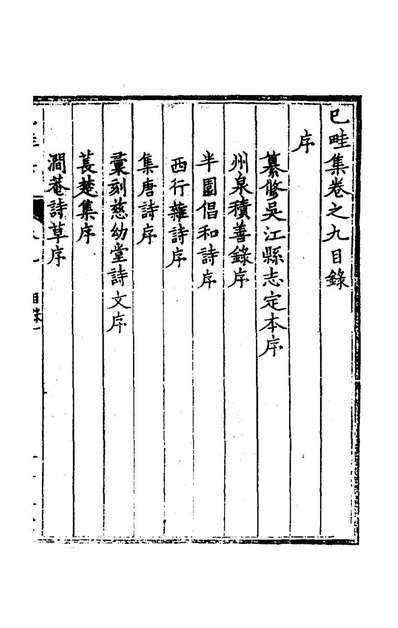 已畦集卷之九目錄
序
纂修吳江縣志定本序
州泉積善錄序
半園倡和詩序
西行雜詩序
集唐詩序
彚刻慈幼堂詩文序
萇楚集序
澗菴詩草序
目錄